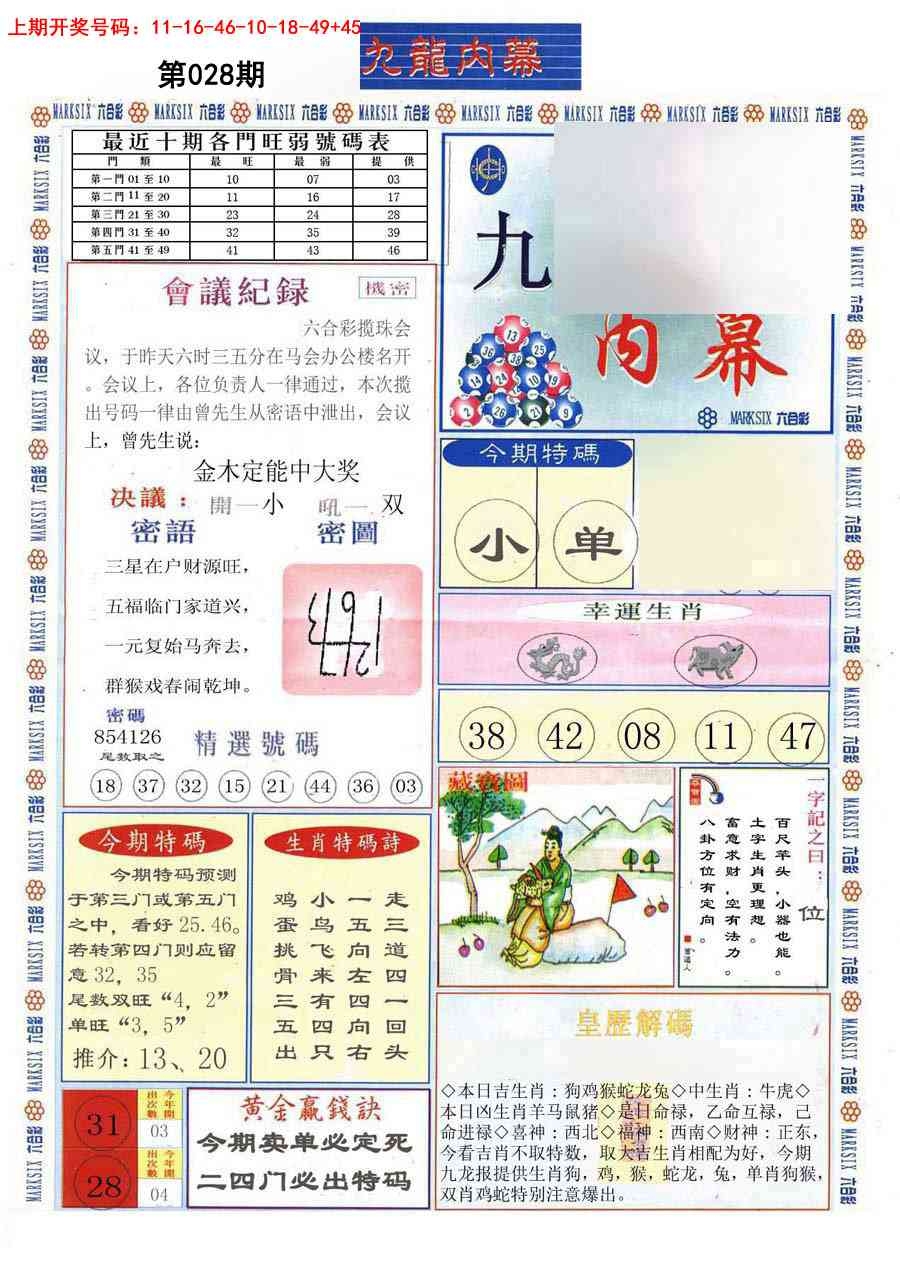 上期开奖号码：11-16-46-10-18-49+45
第028期
九龍内幕
MARKSIX 六合彩
最近十期各門旺弱號碼表
門類 最旺 最弱 提供
第一門 01 至 10 10 07 03
第二門 11 至 20 11 16 17
第三門 21 至 30 23 24 28
第四門 31 至 40 32 35 39
第五門 41 至 49 41 43 46
九
内幕
MARKSIX 六合彩
會議紀録
機密
六合彩揽珠会
议，于昨天六时三五分在马会办公楼名开
。会议上，各位负责人一律通过，本次揽
出号码一律由曾先生从密语中泄出，会议
上，曾先生说：
金木定能中大奖
决議：開一小 吼一双
密語
密圖
三星在户财源旺，
五福临门家道兴，
一元复始马奔去，
群猴戏春闹乾坤。
密碼
854126
尾数取之
精選號碼
18 37 32 15 21 44 36 03
今期特碼
小 单
幸運生肖
38 42 08 11 47
藏寶圖
一字記之曰：位
百尺竿头，小器也能。
土字生肖更理想。
富意求财，空有法力。
八卦方位有定向。
今期特碼
今期特码预测
于第三门或第五门
之中，看好 25.46。
若转第四门则应留
意 32，35
尾数双旺“4，2”
单旺“3，5”
推介：13、20
生肖特碼詩
鸡小一走
蛋鸟五三
挑飞向道
骨来左四
三有四一
五四向回
出只右头
31 今年開出次數 03
28 今年開出次數 04
黄金赢錢訣
今期卖单必定死
二四门必出特码
皇歷解碼
◇本日吉生肖：狗鸡猴蛇龙兔◇中生肖：牛虎◇
本日凶生肖羊马鼠猪◇是日命禄，乙命互禄，己
命进禄◇喜神：西北◇福神：西南◇财神：正东，
今看吉肖不取特数，取大吉生肖相配为好，今期
九龙报提供生肖狗，鸡，猴，蛇龙，兔，单肖狗猴，
双肖鸡蛇特别注意爆出。